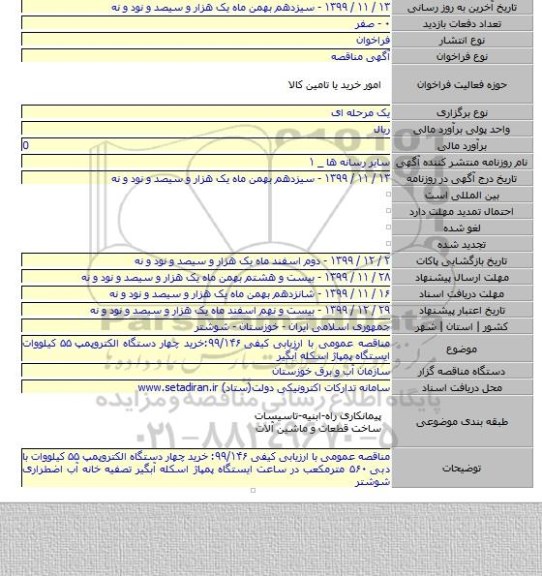 تاریخ آخرین به روز رسانی ۱۳ / ۱۱ / ۱۳۹۹ - سیزدهم بهمن ماه یک هزار و سیصد و نود و نه
تعداد دفعات بازدید ۰ - صفر
نوع انتشار فراخوان
نوع فراخوان آگهی مناقصه
حوزه فعالیت فراخوان امور خرید یا تامین کالا
نوع برگزاری یک مرحله ای
واحد پولی برآورد مالی ریال
برآورد مالی 0
نام روزنامه منتشر کننده آگهی سایر رسانه ها _ ۱
تاریخ درج آگهی در روزنامه ۱۳ / ۱۱ / ۱۳۹۹ - سیزدهم بهمن ماه یک هزار و سیصد و نود و نه
بین المللی است
احتمال تمدید مهلت دارد
لغو شده
تجدید شده
تاریخ بازگشایی پاکات ۲ / ۱۲ / ۱۳۹۹ - دوم اسفند ماه یک هزار و سیصد و نود و نه
مهلت ارسال پیشنهاد ۲۸ / ۱۱ / ۱۳۹۹ - بیست و هشتم بهمن ماه یک هزار و سیصد و نود و نه
مهلت دریافت اسناد ۱۶ / ۱۱ / ۱۳۹۹ - شانزدهم بهمن ماه یک هزار و سیصد و نود و نه
تاریخ اعتبار پیشنهاد ۲۹ / ۱۲ / ۱۳۹۹ - بیست و نهم اسفند ماه یک هزار و سیصد و نود و نه
کشور | استان | شهر جمهوری اسلامی ایران - خوزستان - شوشتر
موضوع مناقصه عمومی با ارزیابی کیفی ۹۹/۱۴۶:خرید چهار دستگاه الکتروپمپ ۵۵ کیلووات
ایستگاه پمپاژ اسکله آبگیر
دستگاه مناقصه گزار سازمان آب و برق خوزستان
محل دریافت اسناد سامانه تدارکات الکترونیکی دولت(ستاد) www.setadiran.ir
طبقه بندی موضوعی پیمانکاری راه-ابنیه-تاسیسات
ساخت قطعات و ماشین آلات
توضیحات مناقصه عمومی با ارزیابی کیفی ۹۹/۱۴۶: خرید چهار دستگاه الکتروپمپ ۵۵ کیلووات با
دبی ۵۶۰ مترمکعب در ساعت ایستگاه پمپاژ اسکله آبگیر تصفیه خانه آب اضطراری
شوشتر
ParsNamadData
پایگاه اطلاع رسانی مناقصه و مزایده
۰۲۱-۸۸۳۴۹۶۷۰-۵